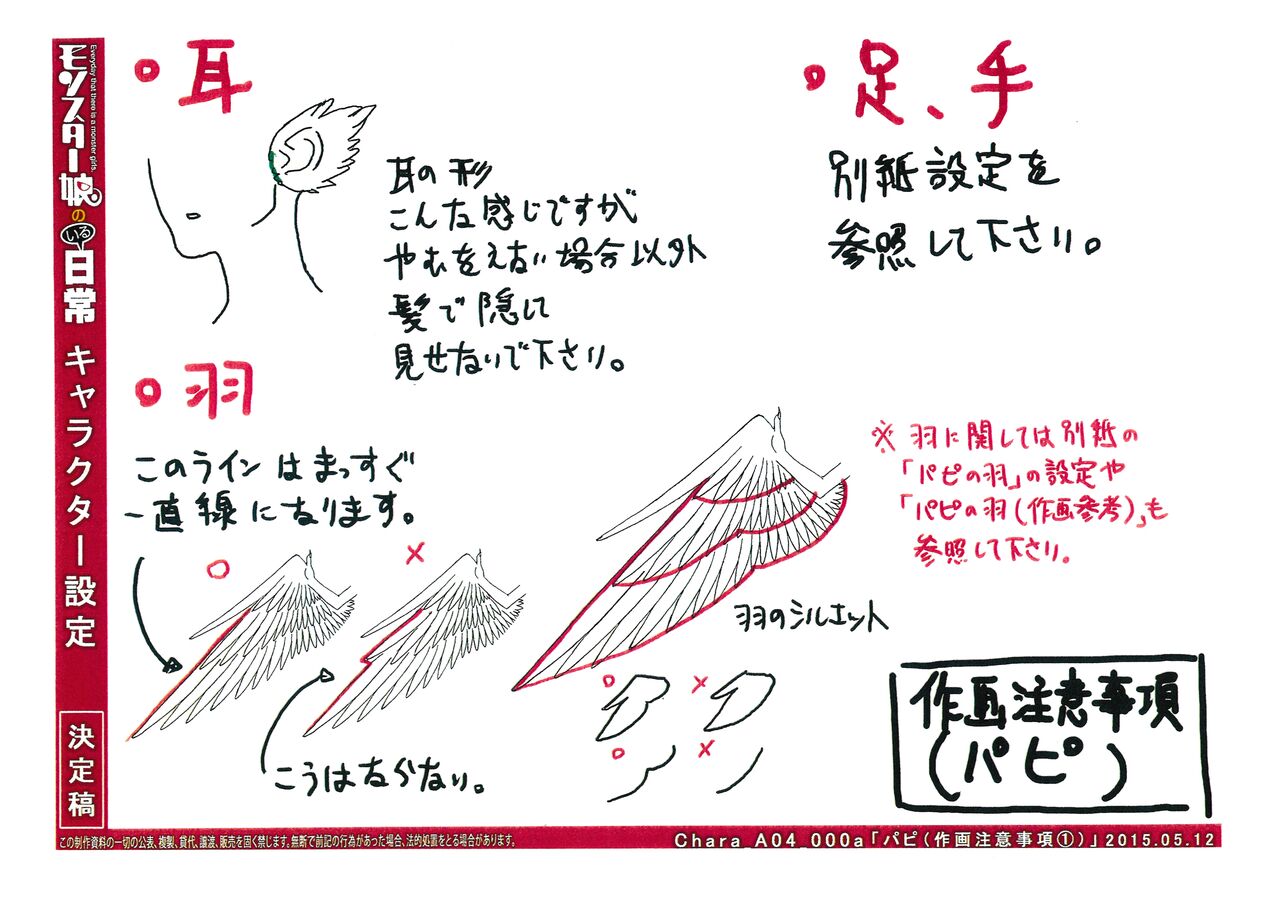 モンスター娘のいる日常 キャラクター設定
Everyday that there is a monster girls.
決定稿
耳
耳の形
こんな感じですが
やむをえない場合以外
髪で隠して
見せないで下さい。
足、手
別紙設定を
参照して下さい。
羽
このラインはまっすぐ
一直線になります。
○
×
こうはならない。
羽のシルエット
○ ×
○ ×
※ 羽に関しては別紙の
「パピの羽」の設定や
「パピの羽(作画参考)」も
参照して下さい。
作画注意事項
(パピ)
この制作資料の一切の公表、複製、貸代、譲渡、販売を固く禁じます。無断で前記の行為があった場合、法的処置をとる場合があります。
Chara_A04_000a「パピ(作画注意事項①)」2015.05.12